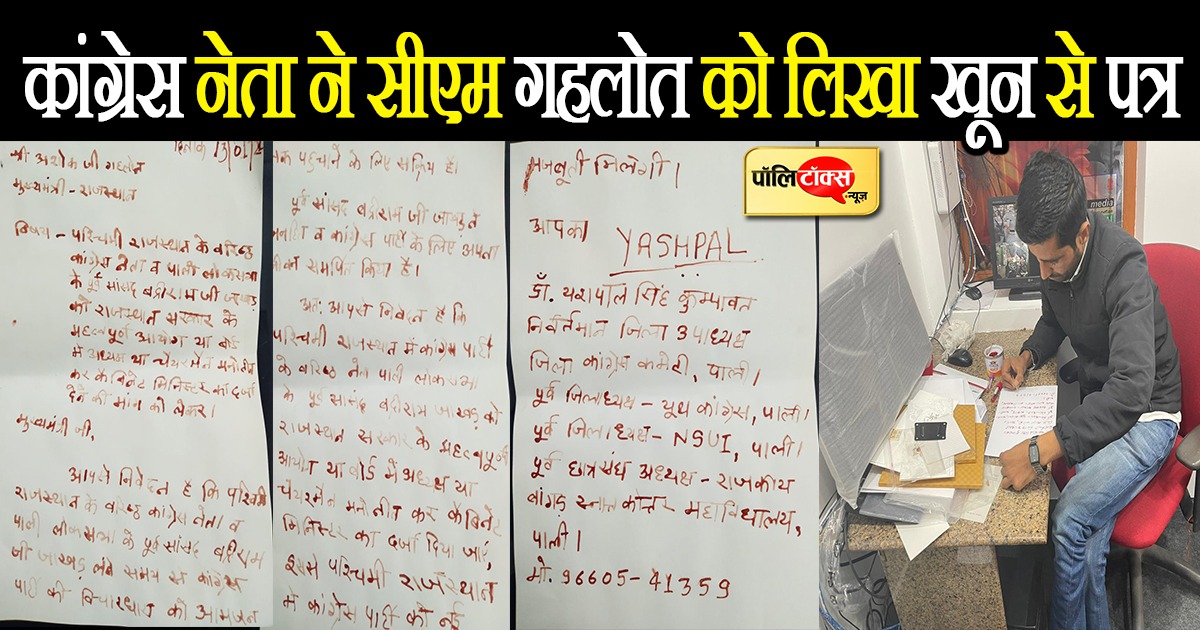 कांग्रेस नेता ने सीएम गहलोत को लिखा खून से पत्र
दिनांक 13/01/
श्री अशोक जी गहलोत
मुख्यमंत्री - राजस्थान
विषय - पश्चिमी राजस्थान के वरिष्ठ
कांग्रेस नेता व पाली लोकसभा
के पूर्व सांसद बद्रीराम जी जाखड़
को राजस्थान सरकार के
महत्वपूर्ण आयोग या बोर्ड
में अध्यक्ष या चेयरमैन मनोनीत
कर केबिनेट मिनिस्टर का दर्जा
देने की मांग को लेकर।
मुख्यमंत्री जी,
आपसे निवेदन है कि पश्चिमी
राजस्थान के वरिष्ठ कांग्रेस नेता व
पाली लोकसभा के पूर्व सांसद बद्रीराम
जी जाखड़ लंबे समय से कांग्रेस
पार्टी की विचारधारा को आमजन
तक पहुंचाने के लिए सक्रिय है।
पूर्व सांसद बद्रीराम जी जाखड़ ने
व कांग्रेस पार्टी के लिए अपना
समर्पित किया है।
अतः आपसे निवेदन है कि
पश्चिमी राजस्थान में कांग्रेस पार्टी
के वरिष्ठ नेता पाली लोकसभा
के पूर्व सांसद बद्रीराम जाखड़ को
राजस्थान सरकार के महत्वपूर्ण
आयोग या बोर्ड में अध्यक्ष या
चेयरमैन मनोनीत कर केबिनेट
मिनिस्टर का दर्जा दिया जाएं,
इससे पश्चिमी राजस्थान
में कांग्रेस पार्टी को नई
मजबूती मिलेगी।
आपका
YASHPAL
डॉ. यशपाल सिंह कुम्पावत
निवर्तमान जिला उपाध्यक्ष
जिला कांग्रेस कमेटी, पाली।
पूर्व जिलाध्यक्ष - यूथ कांग्रेस, पाली।
पूर्व जिलाध्यक्ष - NSUI, पाली।
पूर्व छात्रसंघ अध्यक्ष - राजकीय
बांगड़ स्नातकोत्तर महाविद्यालय,
पाली।
मो. 96605-41359
पॉलिटॉक्स
न्यूज़
media